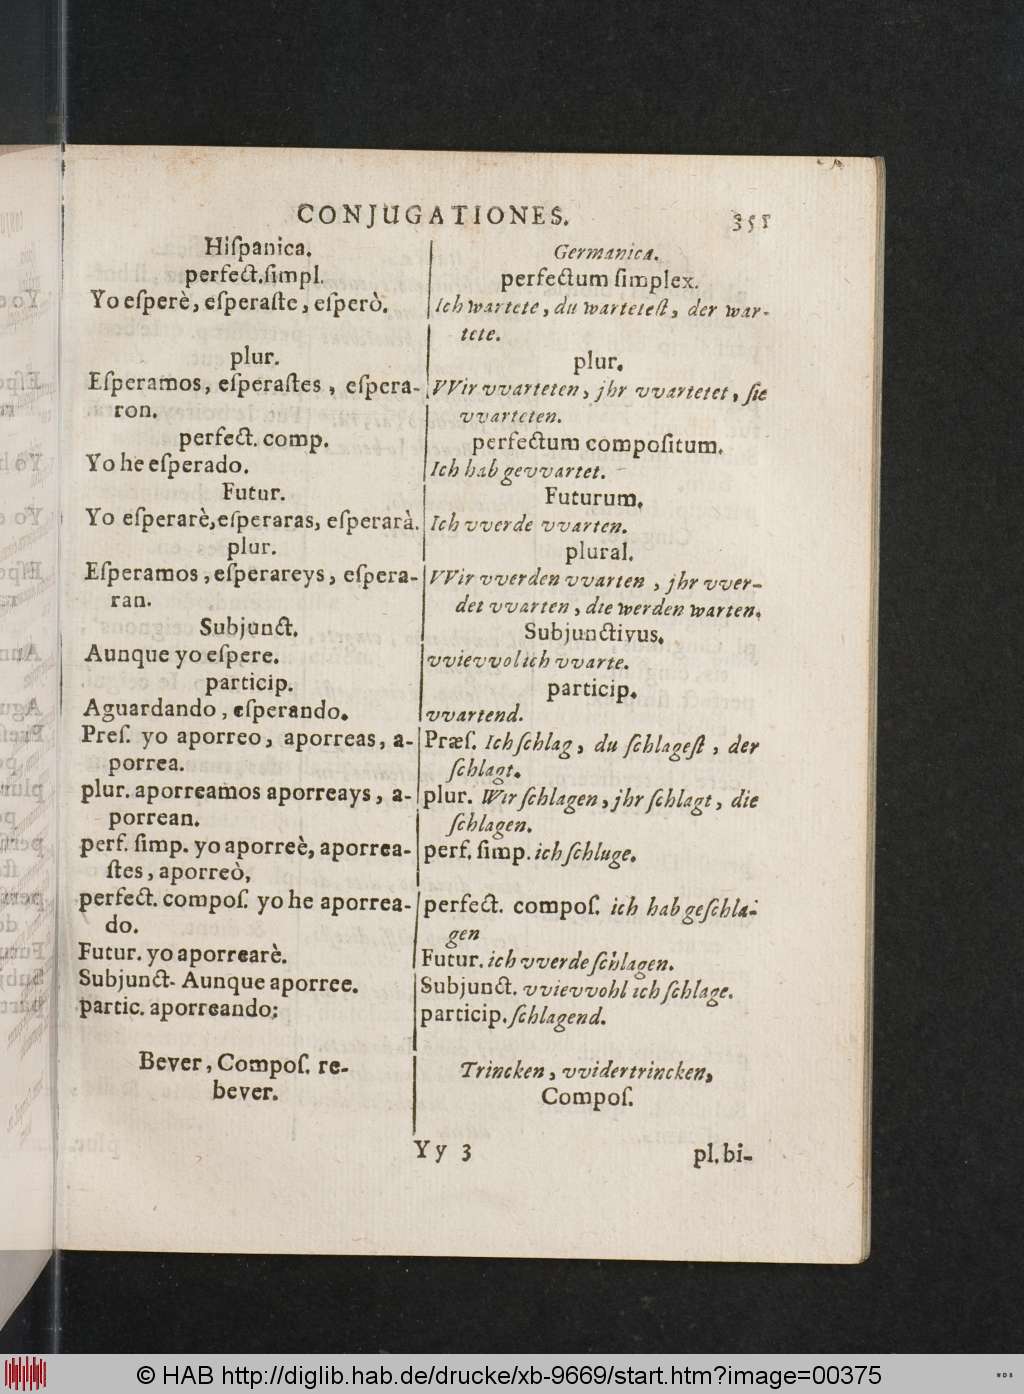 CONJUGATIONES. 351
Hiſpanica.
perfect.ſimpl.
Yo eſperè, eſperaſte, eſperò.
plur.
Eſperamos, eſperaſtes, eſpera-
ron.
perfect. comp.
Yo he eſperado.
Futur.
Yo eſperarè,eſperaras, eſperarà.
plur.
Eſperamos, eſperareys, eſpera-
ran.
Subjunct.
Aunque yo eſpere.
particip.
Aguardando, eſperando.
Preſ. yo aporreo, aporreas, a-
porrea.
plur. aporreamos aporreays, a-
porrean.
perf. ſimp. yo aporreè, aporrea-
ſtes, aporreò,
perfect. compoſ. yo he aporrea-
do.
Futur. yo aporrearè.
Subjunct. Aunque aporree.
partic. aporreando:
Bever, Compoſ. re-
bever.
Germanica.
perfectum ſimplex.
Ich wartete, du warteteſt, der war-
tete.
plur.
VVir vvarteten, jhr vvartetet, ſie
vvarteten.
perfectum compoſitum.
Ich hab gevvartet.
Futurum.
Ich vverde vvarten.
plural.
VVir vverden vvarten, jhr vver-
det vvarten, die werden warten.
Subjunctivus.
vvievvol ich vvarte.
particip.
vvartend.
Præſ. Ich ſchlag, du ſchlageſt, der
ſchlagt.
plur. Wir ſchlagen, jhr ſchlagt, die
ſchlagen.
perf. ſimp. ich ſchluge.
perfect. compoſ. ich hab geſchla-
gen
Futur. ich vverde ſchlagen.
Subjunct. vvievvohl ich ſchlage.
particip. ſchlagend.
Trincken, vvidertrincken,
Compoſ.
Yy 3 pl. bi-
© HAB http://diglib.hab.de/drucke/xb-9669/start.htm?image=00375